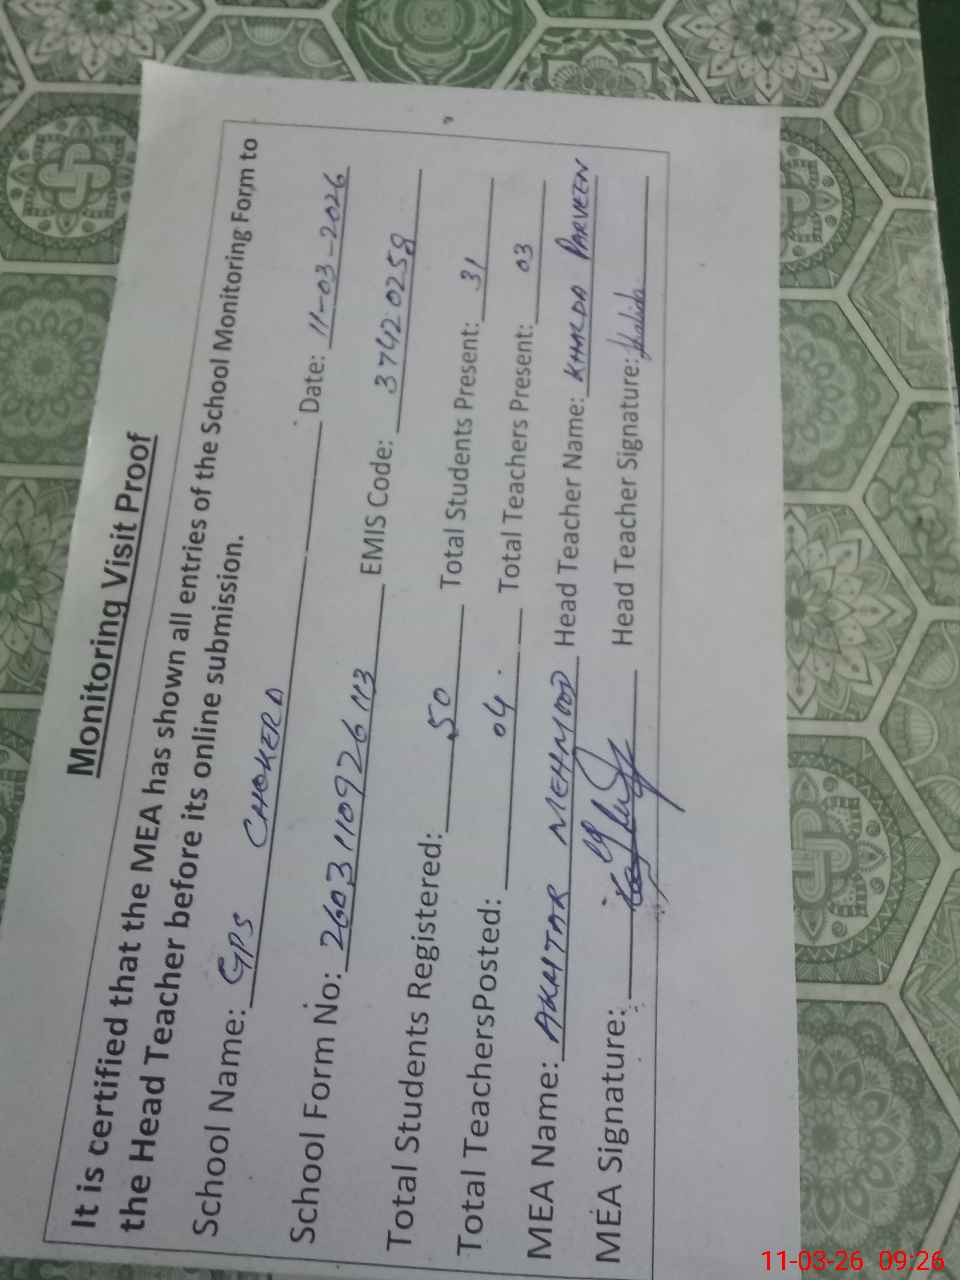 Monitoring Visit Proof
It is certified that the MEA has shown all entries of the School Monitoring Form to
the Head Teacher before its online submission.
School Name: GPS CHOKERA Date: 11-03-2026
School Form No: 26031109726 M3 EMIS Code: 37420258
Total Students Registered: 50 Total Students Present: 31
Total TeachersPosted: 04. Total Teachers Present: 03
MEA Name: AKHTAR MEHMOOD Head Teacher Name: KHALDA PARVEEN
MEA Signature: Head Teacher Signature: Khalida
11-03-26 09:26